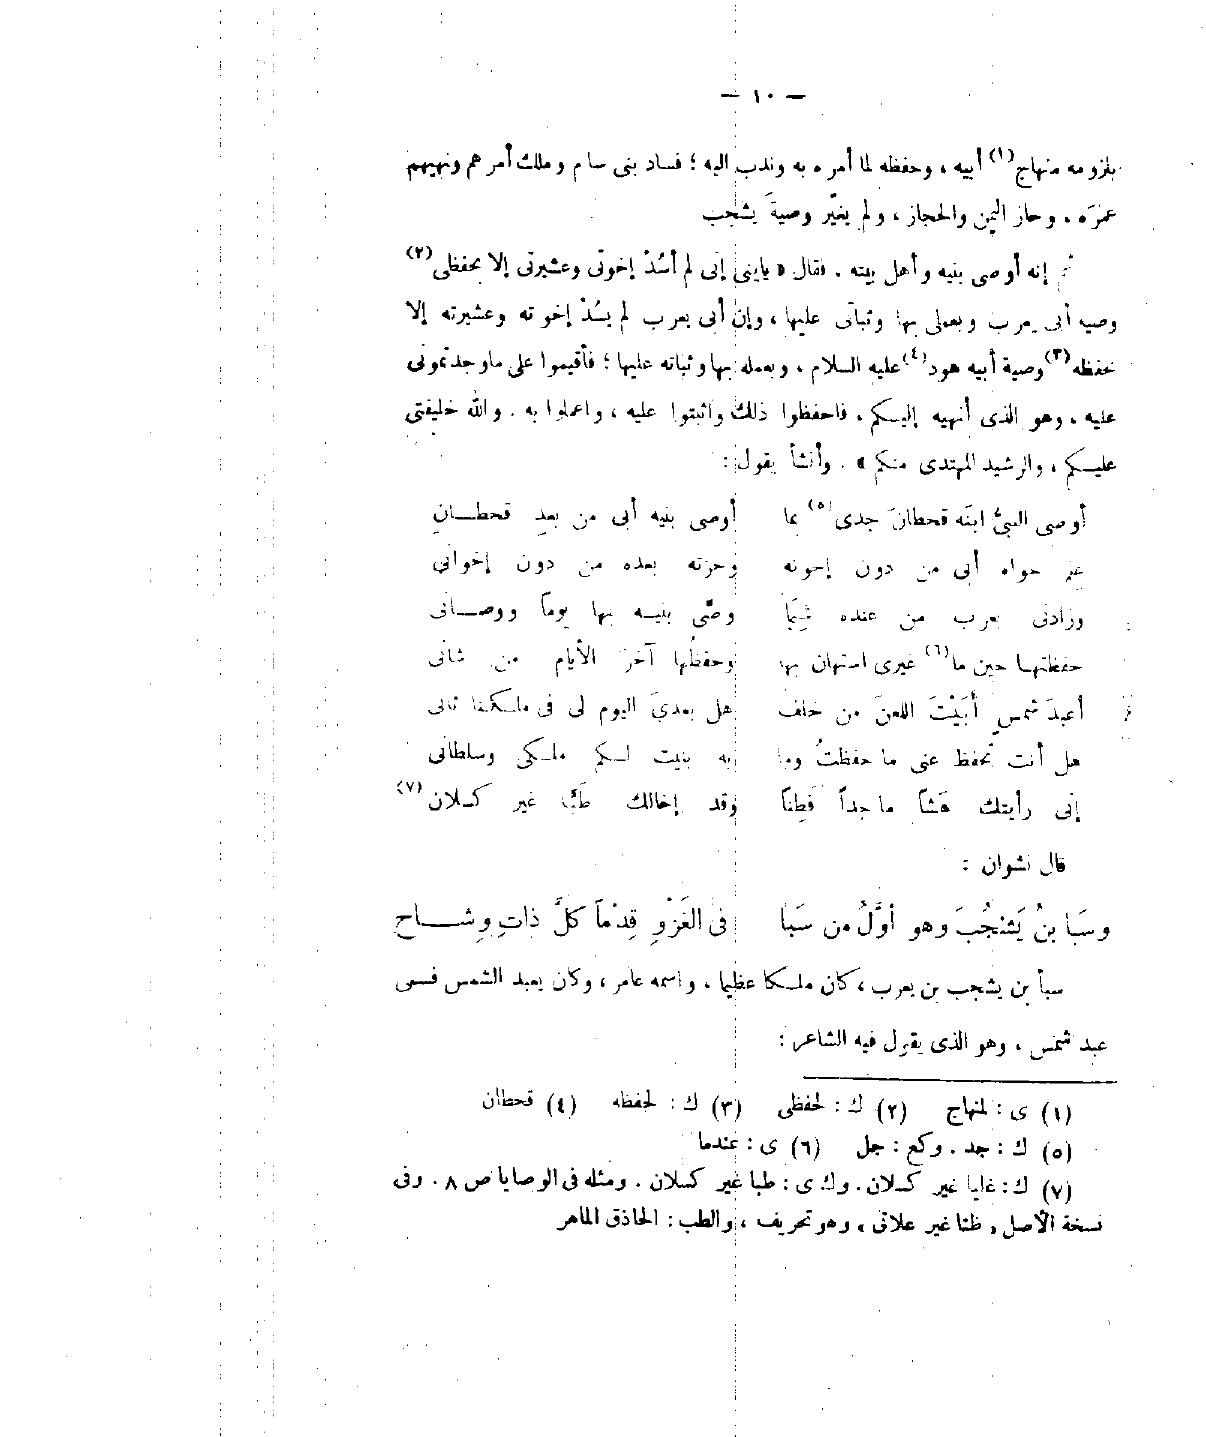 — ١٠ —
بلزومه منهاج(١) أبيه ، وحفظه لما أمره به وندب إليه ؛ فساد بنى سام وملك أمرهم ونهيهم
عمرَه ، وحاز اليمن والحجاز ، ولم يغيّر وصيةَ يشجب
ثم إنه أوصى بنيه وأهل بيته . فقال « يابنى إنى لم أسُدْ إخوتى وعشيرتى إلا بحفظى(٢)
وصية أبى يعرب وبعملى بها وثباتى عليها ، وإن أبى يعرب لم يسُدْ إخوته وعشيرته إلا
بحفظه(٣) وصية أبيه هود(٤) عليه السلام ، وبعمله بها وثباته عليها ؛ فأقيموا على ماوجدتمونى
عليه ، وهو الذى أنهيه إليكم ، فاحفظوا ذلك واثبتوا عليه ، واعملوا به . والله خليفتى
عليكم ، والرشيد المهتدى منكم » . وأنشأ يقول :
أوصى النبىُّ ابنَه قحطانَ جدى(٥) بما أوصى بنيه أبى من بعدِ قحطــانِ
علم حواه أبى من دون إخوته وحزته بعده من دون إخوانى
وزادنى يعرب من عنده شيَما وصّى بنيــه بها يوماً ووصــانى
حفظتهـا حين ما(٦) غيرى استهان بها وحفظُها آخرَ الأيام من شانى
أعبدَ شمسٍ أبَيْتَ اللعنَ من خلف هل بعدىَ اليوم لى فى ملكنا ثانى
هل أنت تحفظ عنى ما حفظتُ وما به بنيت لكم ملكى وسلطانى
إنى رأيتك هَشاً ماجداً فَطِناً وقد إخالك طَبًّا غير كسلان(٧)
قال نشوان :
وسَبا بنُ يَشجُبَ وهو أوَّلُ من سَبَا فى الغَزْوِ قِدْماً كلَّ ذاتِ وِشــاح
سبأ بن يشجب بن يعرب ، كان ملكا عظيما ، واسمه عامر ، وكان يعبد الشمس فسمى
عبد شمس ، وهو الذى يقول فيه الشاعر :
(١) ى : لمنهاج (٢) ك : لحفظى (٣) ك : لحفظه (٤) قحطان
(٥) ك : جد . وكع : جل (٦) ى : عندما
(٧) ك : غلبا غير كسلان . وك ى : طبا غير كسلان . ومثله فى الوصايا ص ٨ . وفى
نسخة الأصل « ظنا غير علانى » وهو تحريف ، والطب : الحاذق الماهر